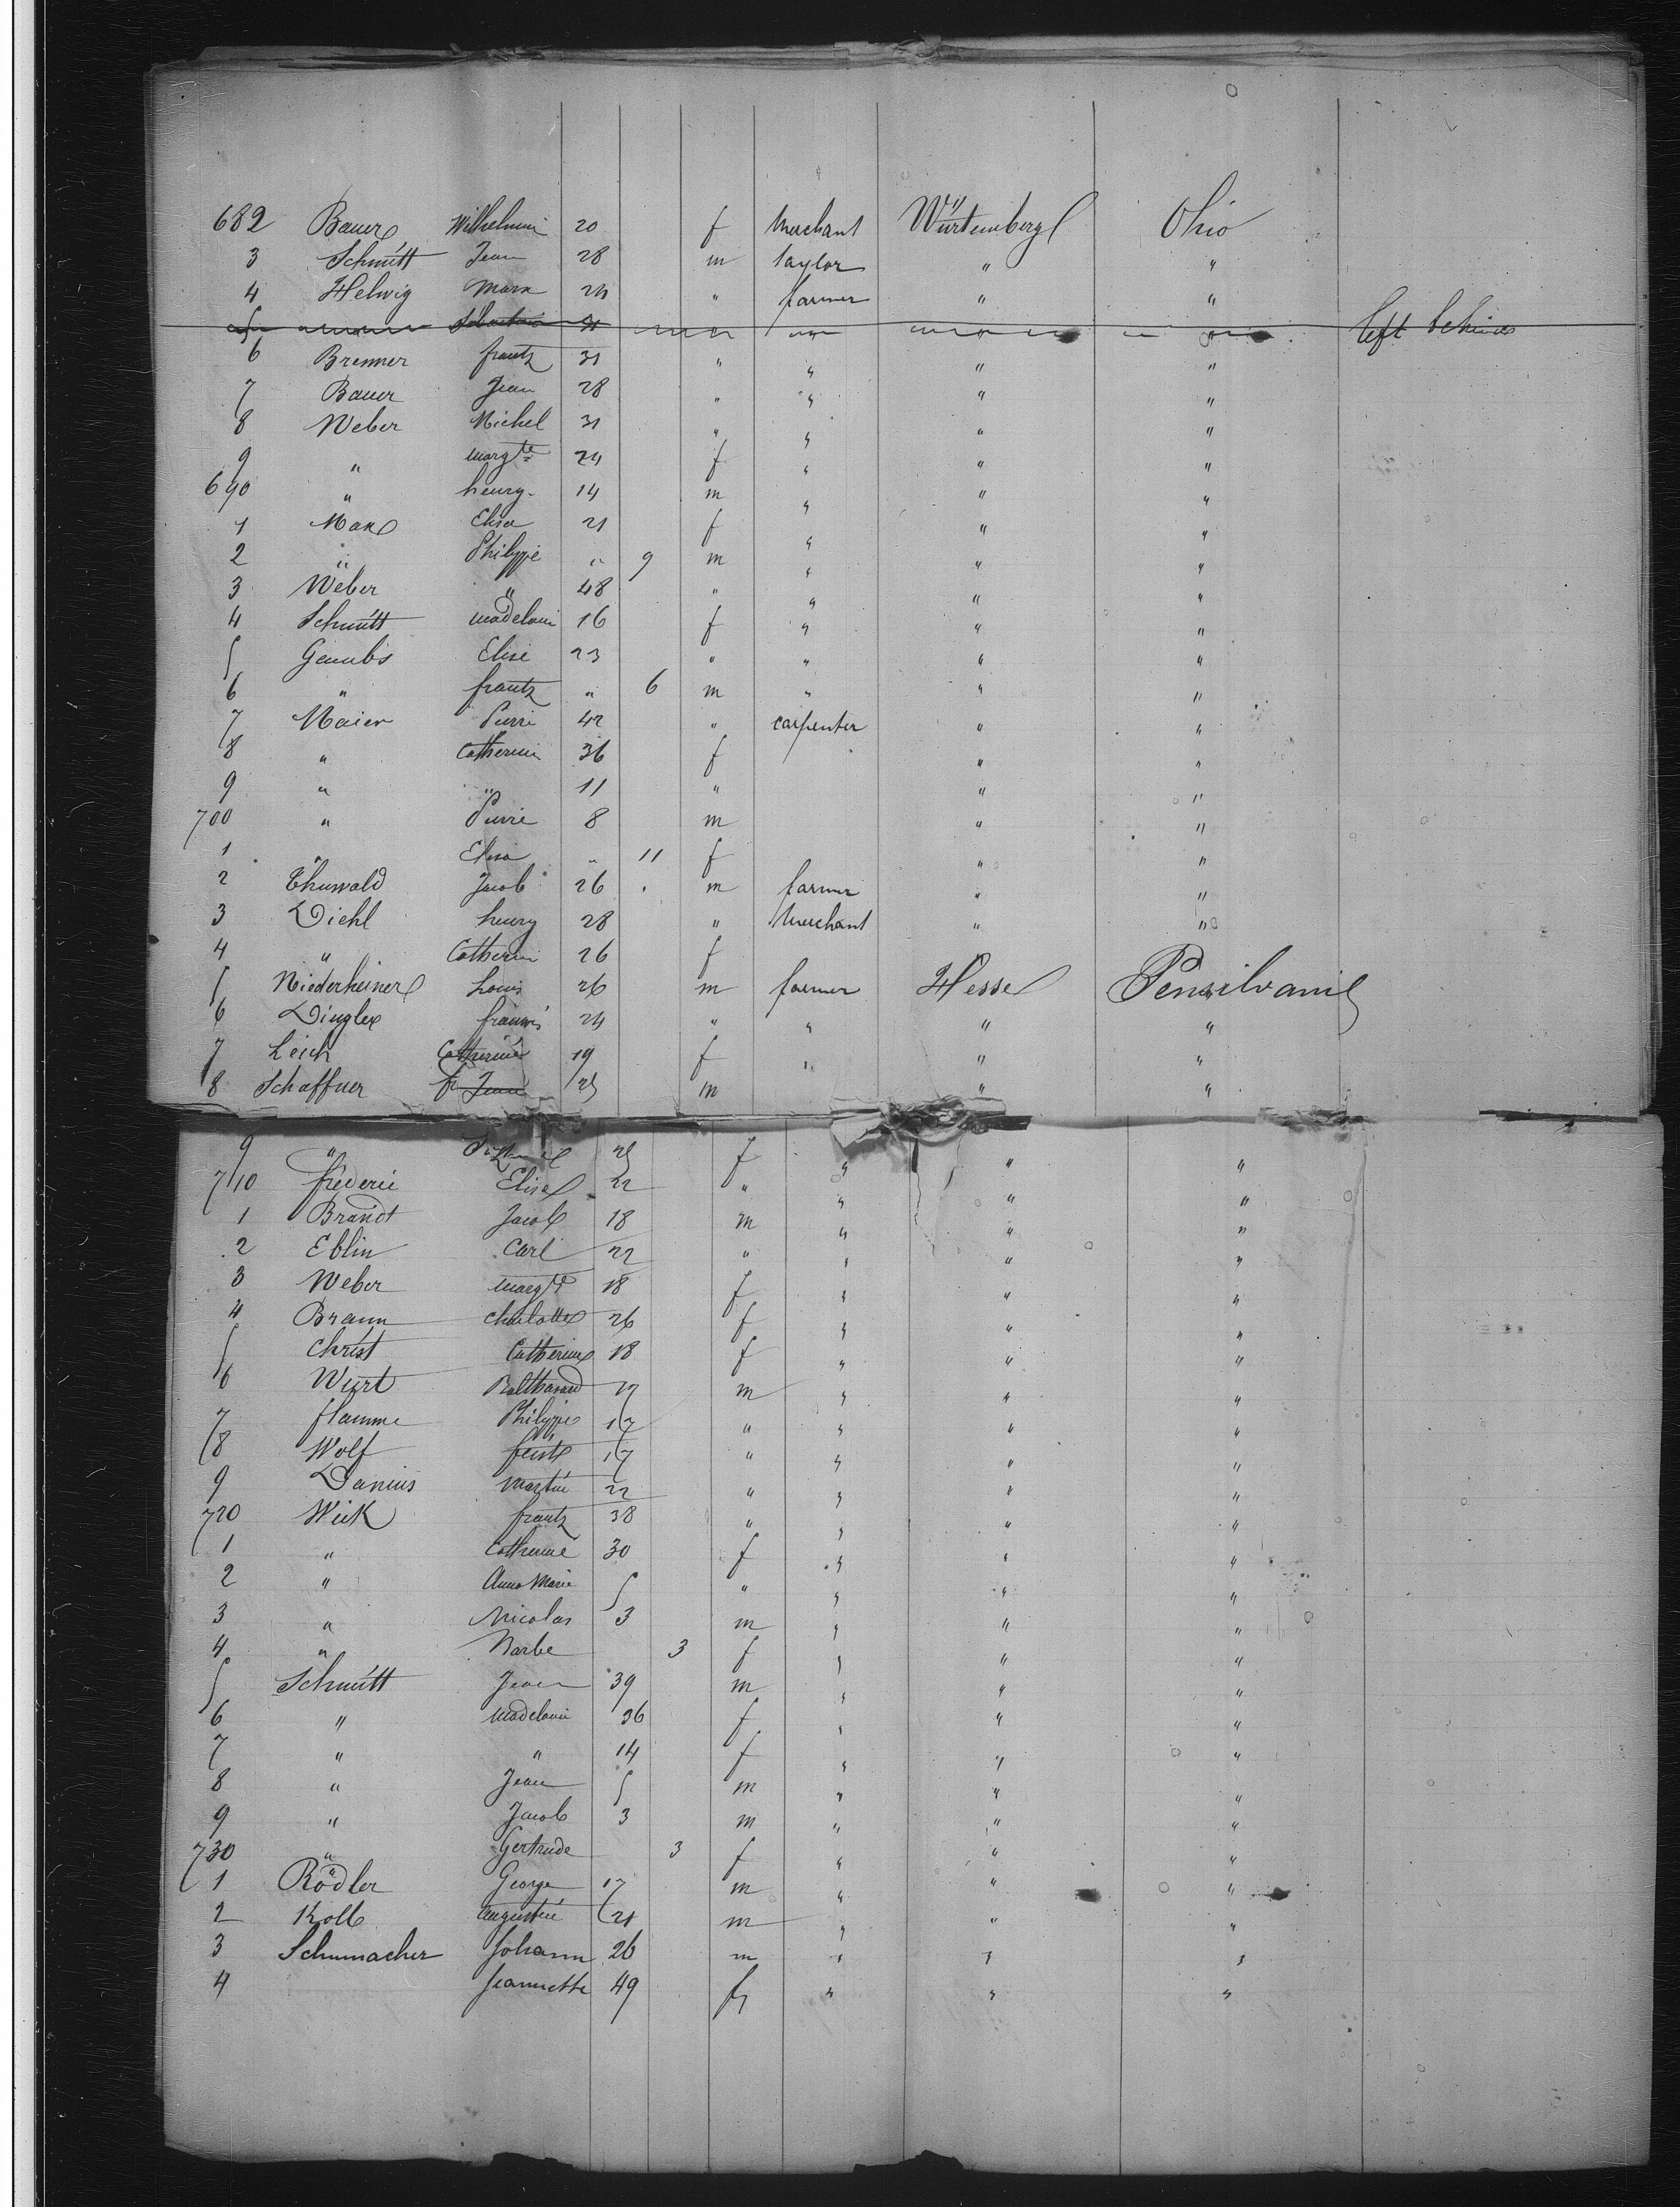 682 Bauer Wilhelmin 20 f Merchant Würtemberg Ohio
3 Schmitt Jean 28 m taylor " "
4 Helwig Marx 24 " farmer " "
5 31 " " left behind
6 Brenner frantz 31 " " " "
7 Bauer Jean 28 " " " "
8 Weber Michel 31 " " " "
9 " margte 24 f " " "
690 " henry 14 m " " "
1 Marx Elisa 21 f " " "
2 " Philippe " 9 m " " "
3 Weber " 48 " " " "
4 Schmitt madelain 16 f " " "
5 Gambs Elise 23 " " " "
6 " frantz " 6 m " " "
7 Maier Pierre 42 " carpenter " "
8 " Catherine 36 f " "
9 " " 11 " " "
700 " Pierre 8 m " "
1 " Elisa " 11 f " "
2 Jacob 26 m farmer " "
3 Diehl henry 28 " Merchant " "
4 " Catherin 26 f
5 Niederheiner Louis 26 m farmer Hesse Pensilvanie
6 Dingler francois 24 " " " "
7 Leich Catherine 19 f " " "
8 Schaffner fr Jean 25 m " "
9 " 25 f " " "
710 frederic Elise 22 " " " "
1 Brandt Jacob 18 m " " "
2 Eblin Carl 22 " " " "
3 Weber margte 18 f " " "
4 Braun charlotte 26 f " " "
5 Christ Catherine 18 f " " "
6 Würt m " " "
7 flamme Philippe 17 " " " "
8 Wolf 17 " " " "
9 Danius martin 22 " " " "
720 Wick frantz 38 " " " "
1 " Catherine 30 f " " "
2 " Anna Marie 5 " " " "
3 " Nicolas 3 m " " "
4 " Barbe 3 f " " "
5 Schmitt Jean 39 m " " "
6 " Madelain 36 f " " "
7 " " 14 f " " "
8 " Jean 5 m " " "
9 " Jacob 3 m " " "
730 " Gertrude 3 f " " "
1 Rödler George 17 m " " "
2 Kolb augustin 21 m " " "
3 Schumacher Johann 26 m " " "
4 Jeannette 49 f " " "